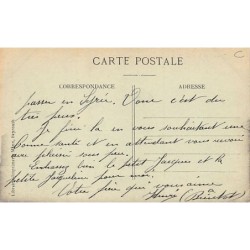 CARTE POSTALE
CORRESPONDANCE
ADRESSE
passer en Syrie. Donc c'est du
très peu.
Je finis la en vous souhaitant une
bonne santé et en attendant vous revoir
avec plaisir sous peu.
Embrassez bien le petit Jacques et la
petite Jacqueline pour moi.
Votre frère qui vous aime